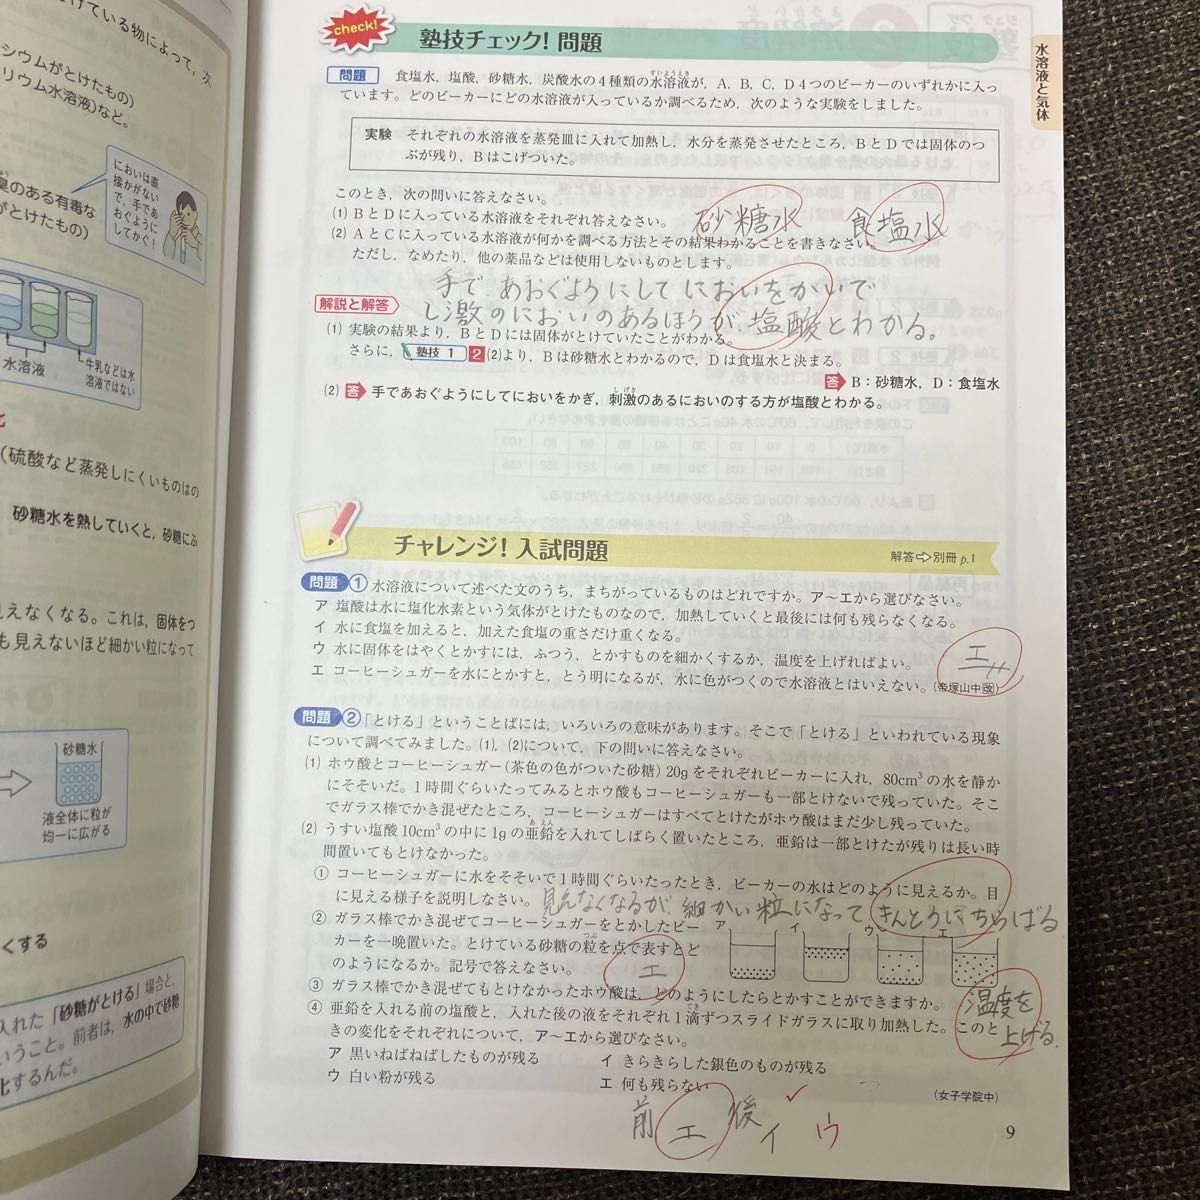 ている物によって，次
シウムがとけたもの）
リウム水溶液）など。
臭のある有毒な
がとけたもの）
においは直
接かがない
で，手であ
おぐように
してかぐ！
水溶液
牛乳などは水
溶液ではない
（硫酸など蒸発しにくいものはの
砂糖水を熱していくと，砂糖にふ
見えなくなる。これは，固体をつ
も見えないほど細かい粒になって
砂糖水
液全体に粒が
均一に広がる
くする
入れた「砂糖がとける」場合と，
いうこと。前者は，水の中で砂糖
化するんだ。
check!
塾技チェック！問題
水溶液と気体
問題 食塩水，塩酸，砂糖水，炭酸水の4種類の水溶液が，A，B，C，D4つのビーカーのいずれかに入っ
すいようえき
ています。どのビーカーにどの水溶液が入っているか調べるため，次のような実験をしました。
実験 それぞれの水溶液を蒸発皿に入れて加熱し，水分を蒸発させたところ，BとDでは固体のつ
ぶが残り，Bはこげついた。
このとき，次の問いに答えなさい。
(1) BとDに入っている水溶液をそれぞれ答えなさい。 砂糖水 食塩水
(2) AとCに入っている水溶液が何かを調べる方法とその結果わかることを書きなさい。
ただし，なめたり，他の薬品などは使用しないものとします。
手で、あおぐようにしてにおいをかいで
し激のにおいのあるほうが、塩酸とわかる。
解説と解答
(1) 実験の結果より，BとDには固体がとけていたことがわかる。
さらに，塾技 1 2 (2)より，Bは砂糖水とわかるので，Dは食塩水と決まる。
答 B：砂糖水，D：食塩水
(2) 答 手であおぐようにしてにおいをかぎ，刺激のあるにおいのする方が塩酸とわかる。
しげき
チャレンジ！入試問題
解答⇨別冊p.1
問題 ① 水溶液について述べた文のうち，まちがっているものはどれですか。ア～エから選びなさい。
ア 塩酸は水に塩化水素という気体がとけたものなので，加熱していくと最後には何も残らなくなる。
イ 水に食塩を加えると，加えた食塩の重さだけ重くなる。
ウ 水に固体をはやくとかすには，ふつう，とかすものを細かくするか，温度を上げればよい。
エ コーヒーシュガーを水にとかすと，とう明になるが，水に色がつくので水溶液とはいえない。(帝塚山中改)
エ
問題 ② 「とける」ということばには，いろいろの意味があります。そこで「とける」といわれている現象
について調べてみました。(1)，(2)について，下の問いに答えなさい。
(1) ホウ酸とコーヒーシュガー（茶色の色がついた砂糖）20gをそれぞれビーカーに入れ，80cm³の水を静か
にそそいだ。1時間ぐらいたってみるとホウ酸もコーヒーシュガーも一部とけないで残っていた。そこ
でガラス棒でかき混ぜたところ，コーヒーシュガーはすべてとけたがホウ酸はまだ少し残っていた。
(2) うすい塩酸10cm³の中に1gの亜鉛を入れてしばらく置いたところ，亜鉛は一部とけたが残りは長い時
あえん
間置いてもとけなかった。
① コーヒーシュガーに水をそそいで1時間ぐらいたったとき，ビーカーの水はどのように見えるか。目
に見える様子を説明しなさい。 見えなくなるが、細かい粒になって、きんとうにちらばる
② ガラス棒でかき混ぜてコーヒーシュガーをとかしたビー
カーを一晩置いた。とけている砂糖の粒を点で表すとど
つぶ
のようになるか。記号で答えなさい。 エ
ア イ ウ エ
③ ガラス棒でかき混ぜてもとけなかったホウ酸は，どのようにしたらとかすことができますか。
温度を上げる.
④ 亜鉛を入れる前の塩酸と，入れた後の液をそれぞれ1滴ずつスライドガラスに取り加熱した。このと
てき
きの変化をそれぞれについて，ア～エから選びなさい。
ア 黒いねばねばしたものが残る イ きらきらした銀色のものが残る
ウ 白い粉が残る エ 何も残らない
(女子学院中)
前 エ 後 イ ウ
9